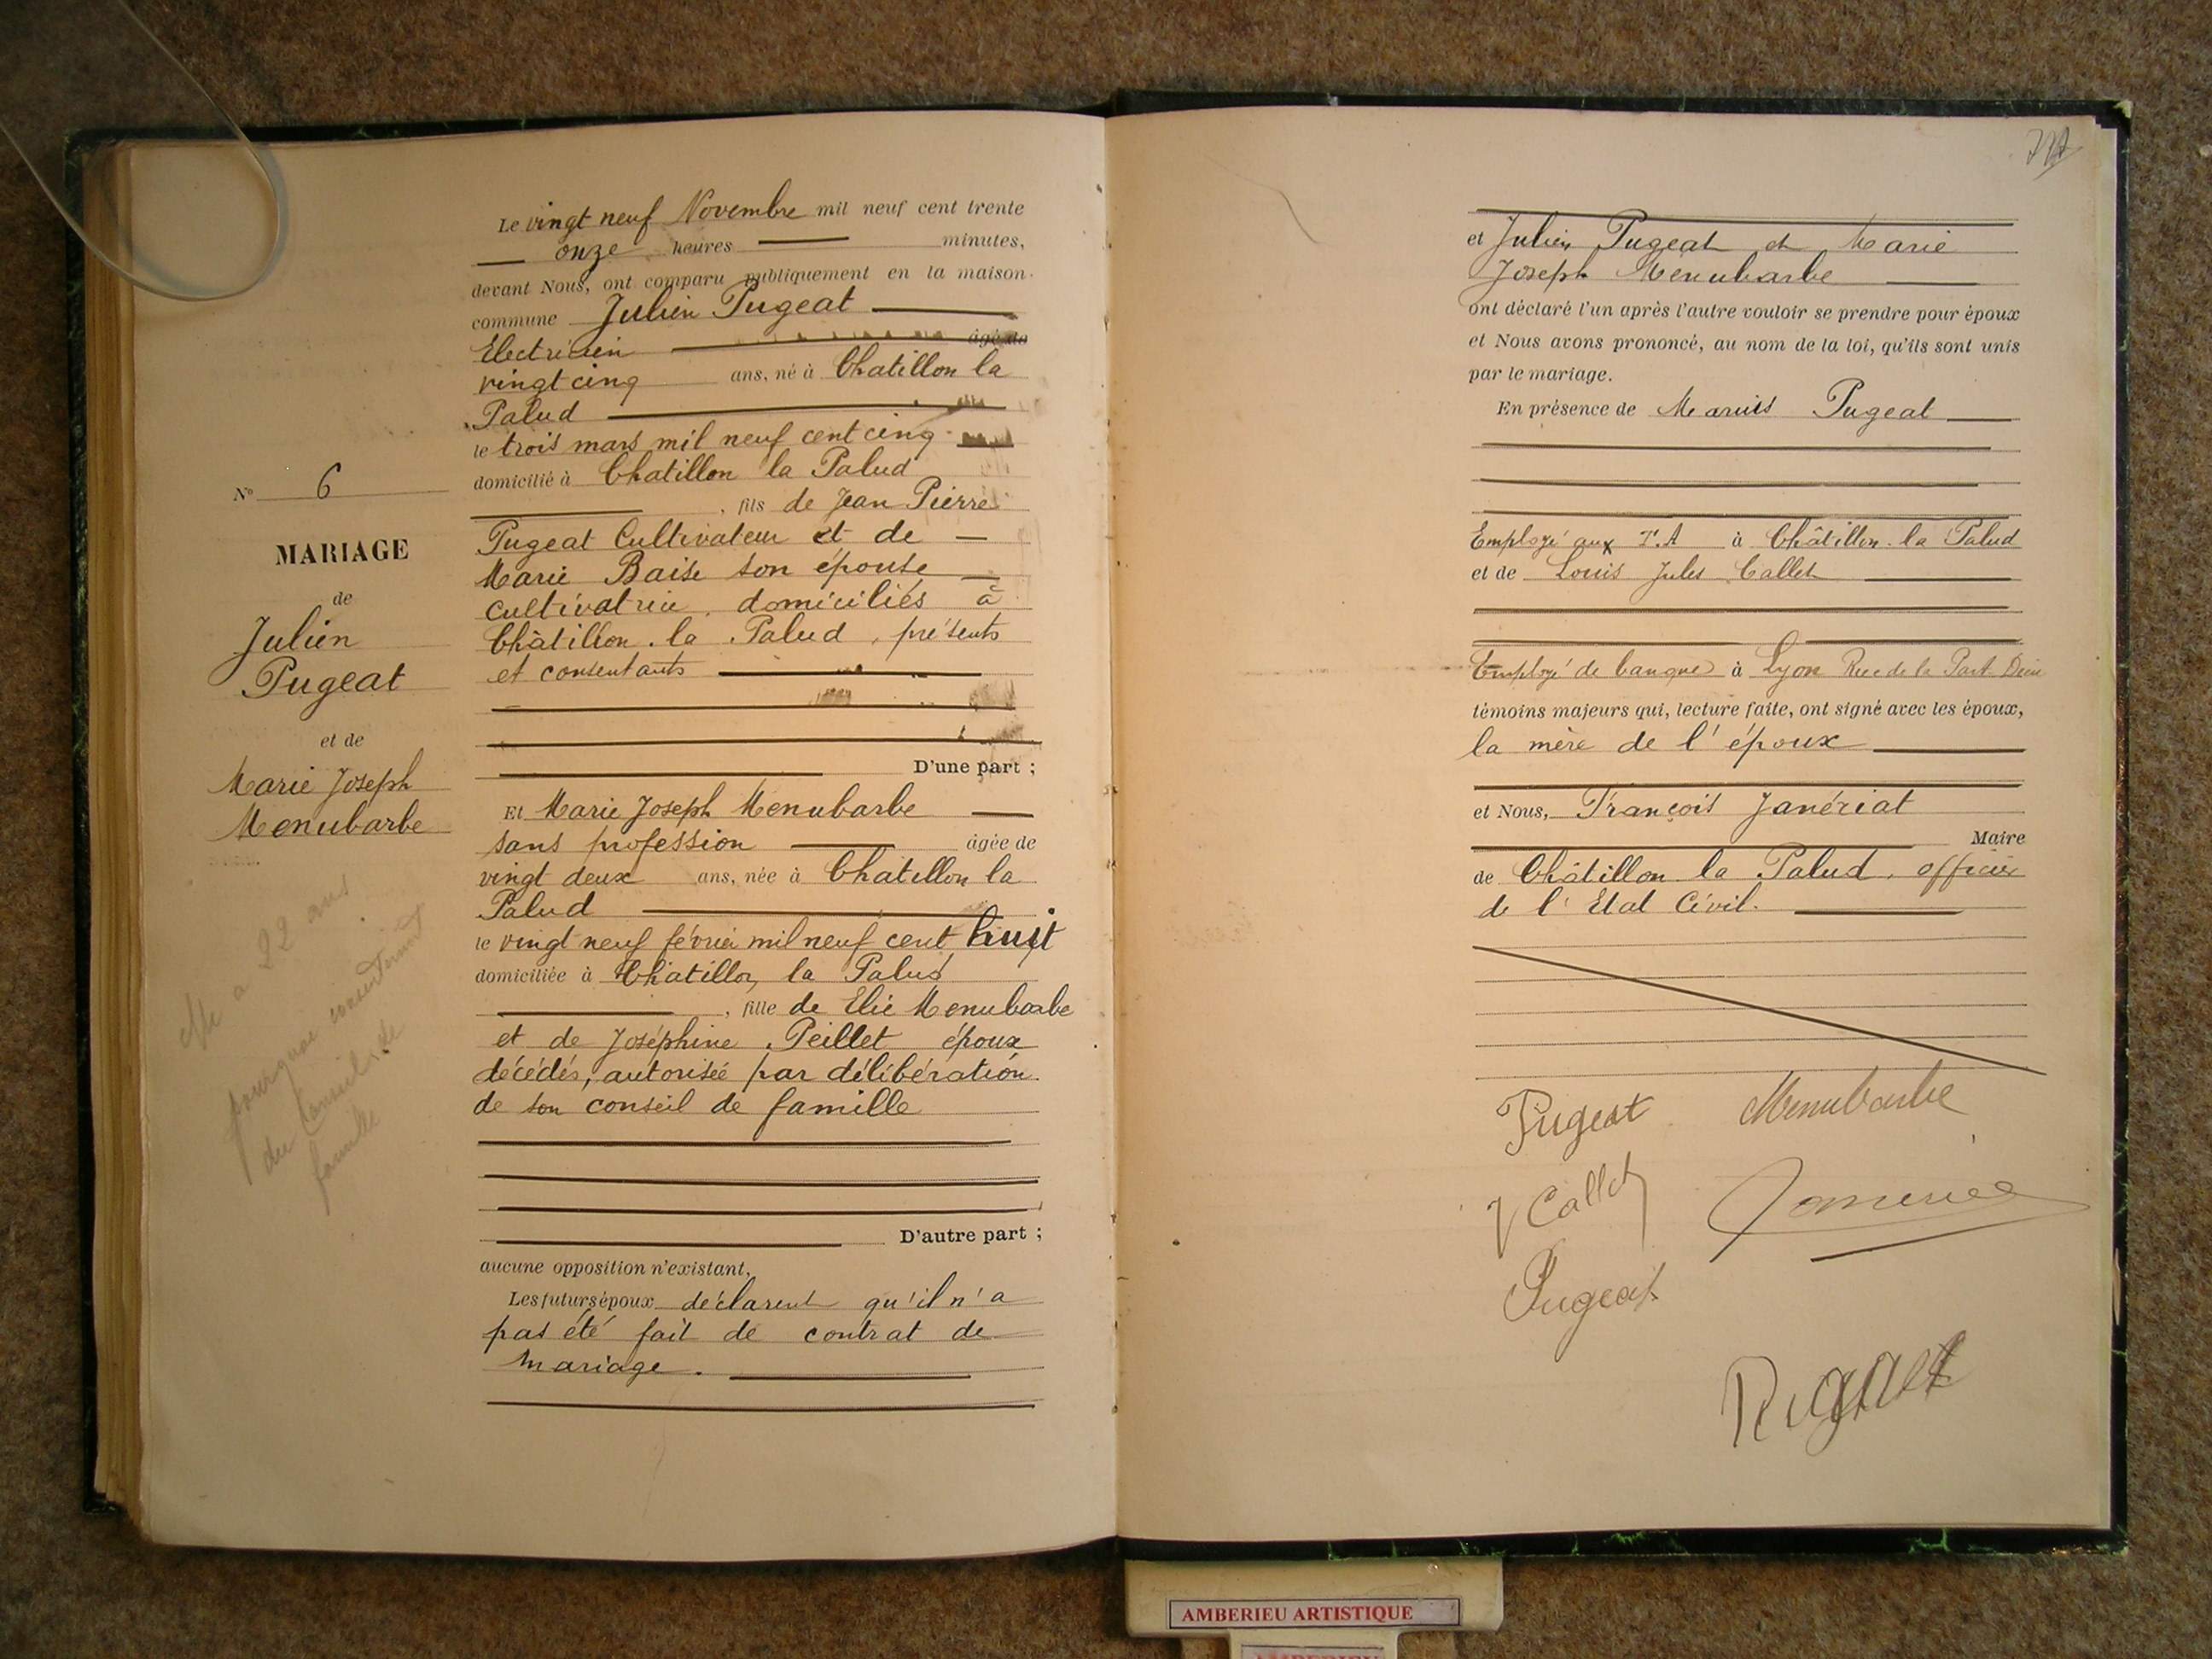 Le vingt neuf Novembre mil neuf cent trente
onze heures minutes,
devant Nous, ont comparu publiquement en la maison
commune Julien Pugeat
Electricien âgé de
vingt cinq ans, né à Chatillon la
Palud
le trois mars mil neuf cent cinq
domicilié à Chatillon la Palud
, fils de Jean Pierre
Pugeat Cultivateur et de
Marie Baise son épouse
cultivatrice, domiciliés à
Châtillon la Palud, présents
et consentants
D'une part ;
Nº 6
MARIAGE
de
Julien
Pugeat
et de
Marie Joseph
Menubarbe
Et Marie Joseph Menubarbe
sans profession âgée de
vingt deux ans, née à Chatillon la
Palud
le vingt neuf février mil neuf cent huit
domiciliée à Chatillon la Palud
, fille de Elie Menubarbe
et de Joséphine Peillet époux
décédés, autorisée par délibération
de son conseil de famille
D'autre part ;
elle a 22 ans
pourquoi consentement
du Conseil de
famille
aucune opposition n'existant,
Les futurs époux déclarent qu'il n'a
pas été fait de contrat de
mariage.
et Julien Pugeat et Marie
Joseph Menubarbe
ont déclaré l'un après l'autre vouloir se prendre pour époux
et Nous avons prononcé, au nom de la loi, qu'ils sont unis
par le mariage.
En présence de Marius Pugeat
Employé aux T.A à Châtillon la Palud
et de Louis Jules Callet
Employé de banque à Lyon Rue de la Part Dieu
témoins majeurs qui, lecture faite, ont signé avec les époux,
la mère de l'époux
et Nous, François Janériat
Maire
de Châtillon la Palud, officier
de l'Etat Civil.
Pugeat Menubarbe
J Callet
Pugeat
AMBERIEU ARTISTIQUE